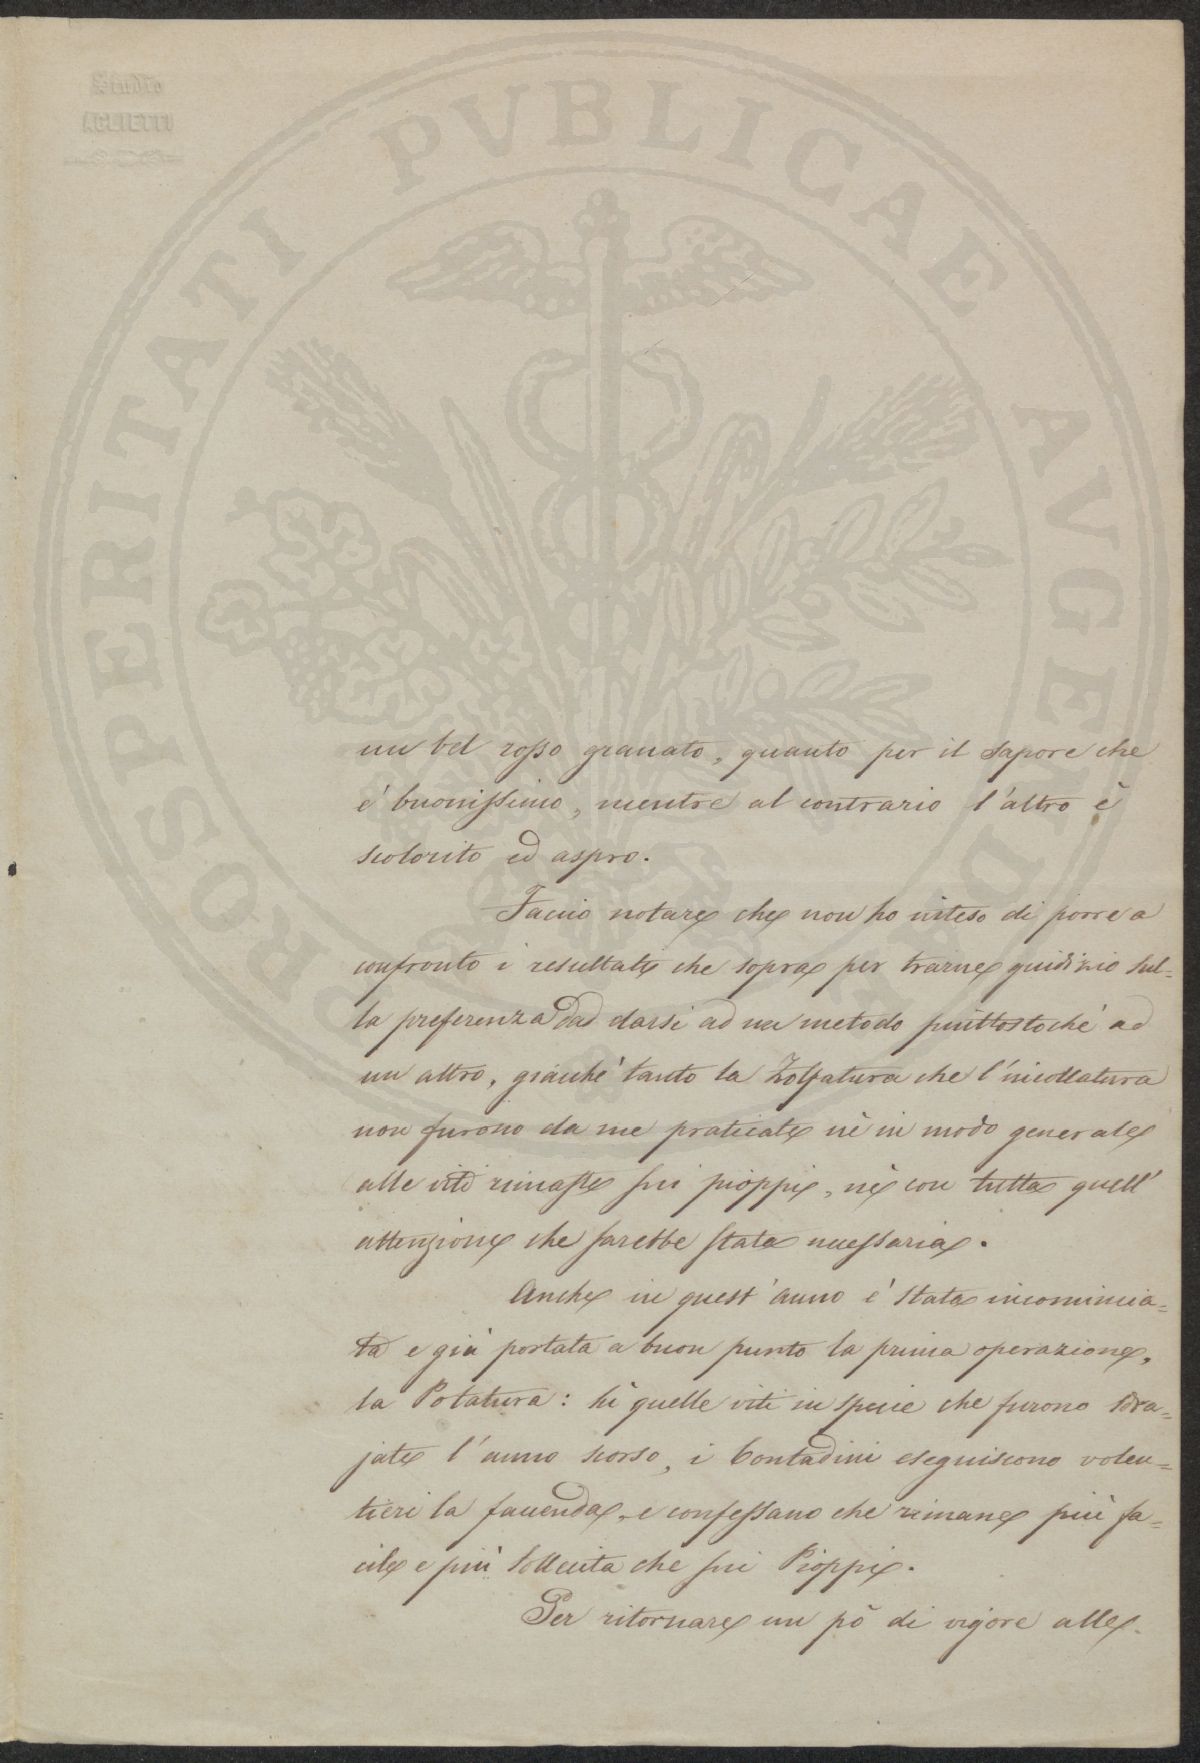 Studio
AGLIETTI
PROSPERITATI PVBLICAE AVGENDAE
un bel rosso granato, quanto per il sapore che
é buonissimo, mentre al contrario l'altro è
scolorito ed aspro.
Faccio notare che non ho inteso di porre a
confronto i resultati che sopra per trarne giudizio sul=
la preferenza da darsi ad un metodo piuttostoché ad
un altro, giacché tanto la Zolfatura che l'incollatura
non furono da me praticate né in modo generale
alle viti rimaste sui pioppi, né con tutta quell'
attenzione che sarebbe stata necessaria.
Anche in quest'anno é stata incomincia=
ta e già portata a buon punto la prima operazione,
la Potatura: su quelle viti in specie che furono sdra=
jate l'anno scorso, i Contadini eseguiscono volen=
tieri la faccenda, e confessano che rimane più fa=
cile e più sollecita che sui Pioppi.
Per ritornare un pò di vigore alle